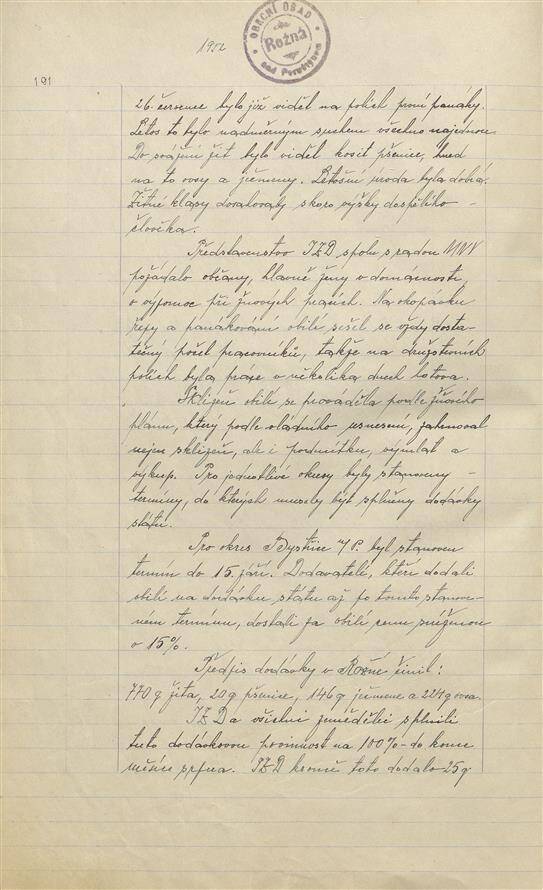 1952
OBECNÍ ÚŘAD
Rožná
nad Pernštejnem
191
26. července bylo již viděl na polích první panáky.
Letos to bylo nadměrným suchem všechno najednou.
Do svážení žit bylo viděl kosit pšenice, hned
na to ovsy a ječmeny. Letošní úroda byla dobrá.
Žitné klasy dosahovaly skoro výšky dospělého
člověka.
Představenstvo JZD spolu s radou MNV
požádalo občany, hlavně ženy v domácnosti,
o výpomoc při žňových pracích. Na okopávku
řepy a panákování obilí sešel se vždy dosta-
tečný počet pracovníků, takže na družstevních
polích byla práce v několika dnech hotova.
Sklizeň obilí se prováděla podle žňového
plánu, který podle vládního usnesení, zahrnoval
nejen sklizeň, ale i podmítku, výmlat a
výkup. Pro jednotlivé okresy byly stanoveny
termíny, do kterých musely být splněny dodávky
státu.
Pro okres Bystřice n/P. byl stanoven
termín do 15. září. Dodavatelé, kteří dodali
obilí na dodávku státu až po tomto stanove-
ném termínu, dostali za obilí cenu sníženou
o 15%.
Předpis dodávky v Rožné činil:
770 q žita, 20 q pšenice, 146 q ječmene a 224 q ovsa.
JZD a všichni zemědělci splnili
tuto dodávkovou povinnost na 100% do konce
měsíce srpna. JZD kromě toto dodalo 25 q